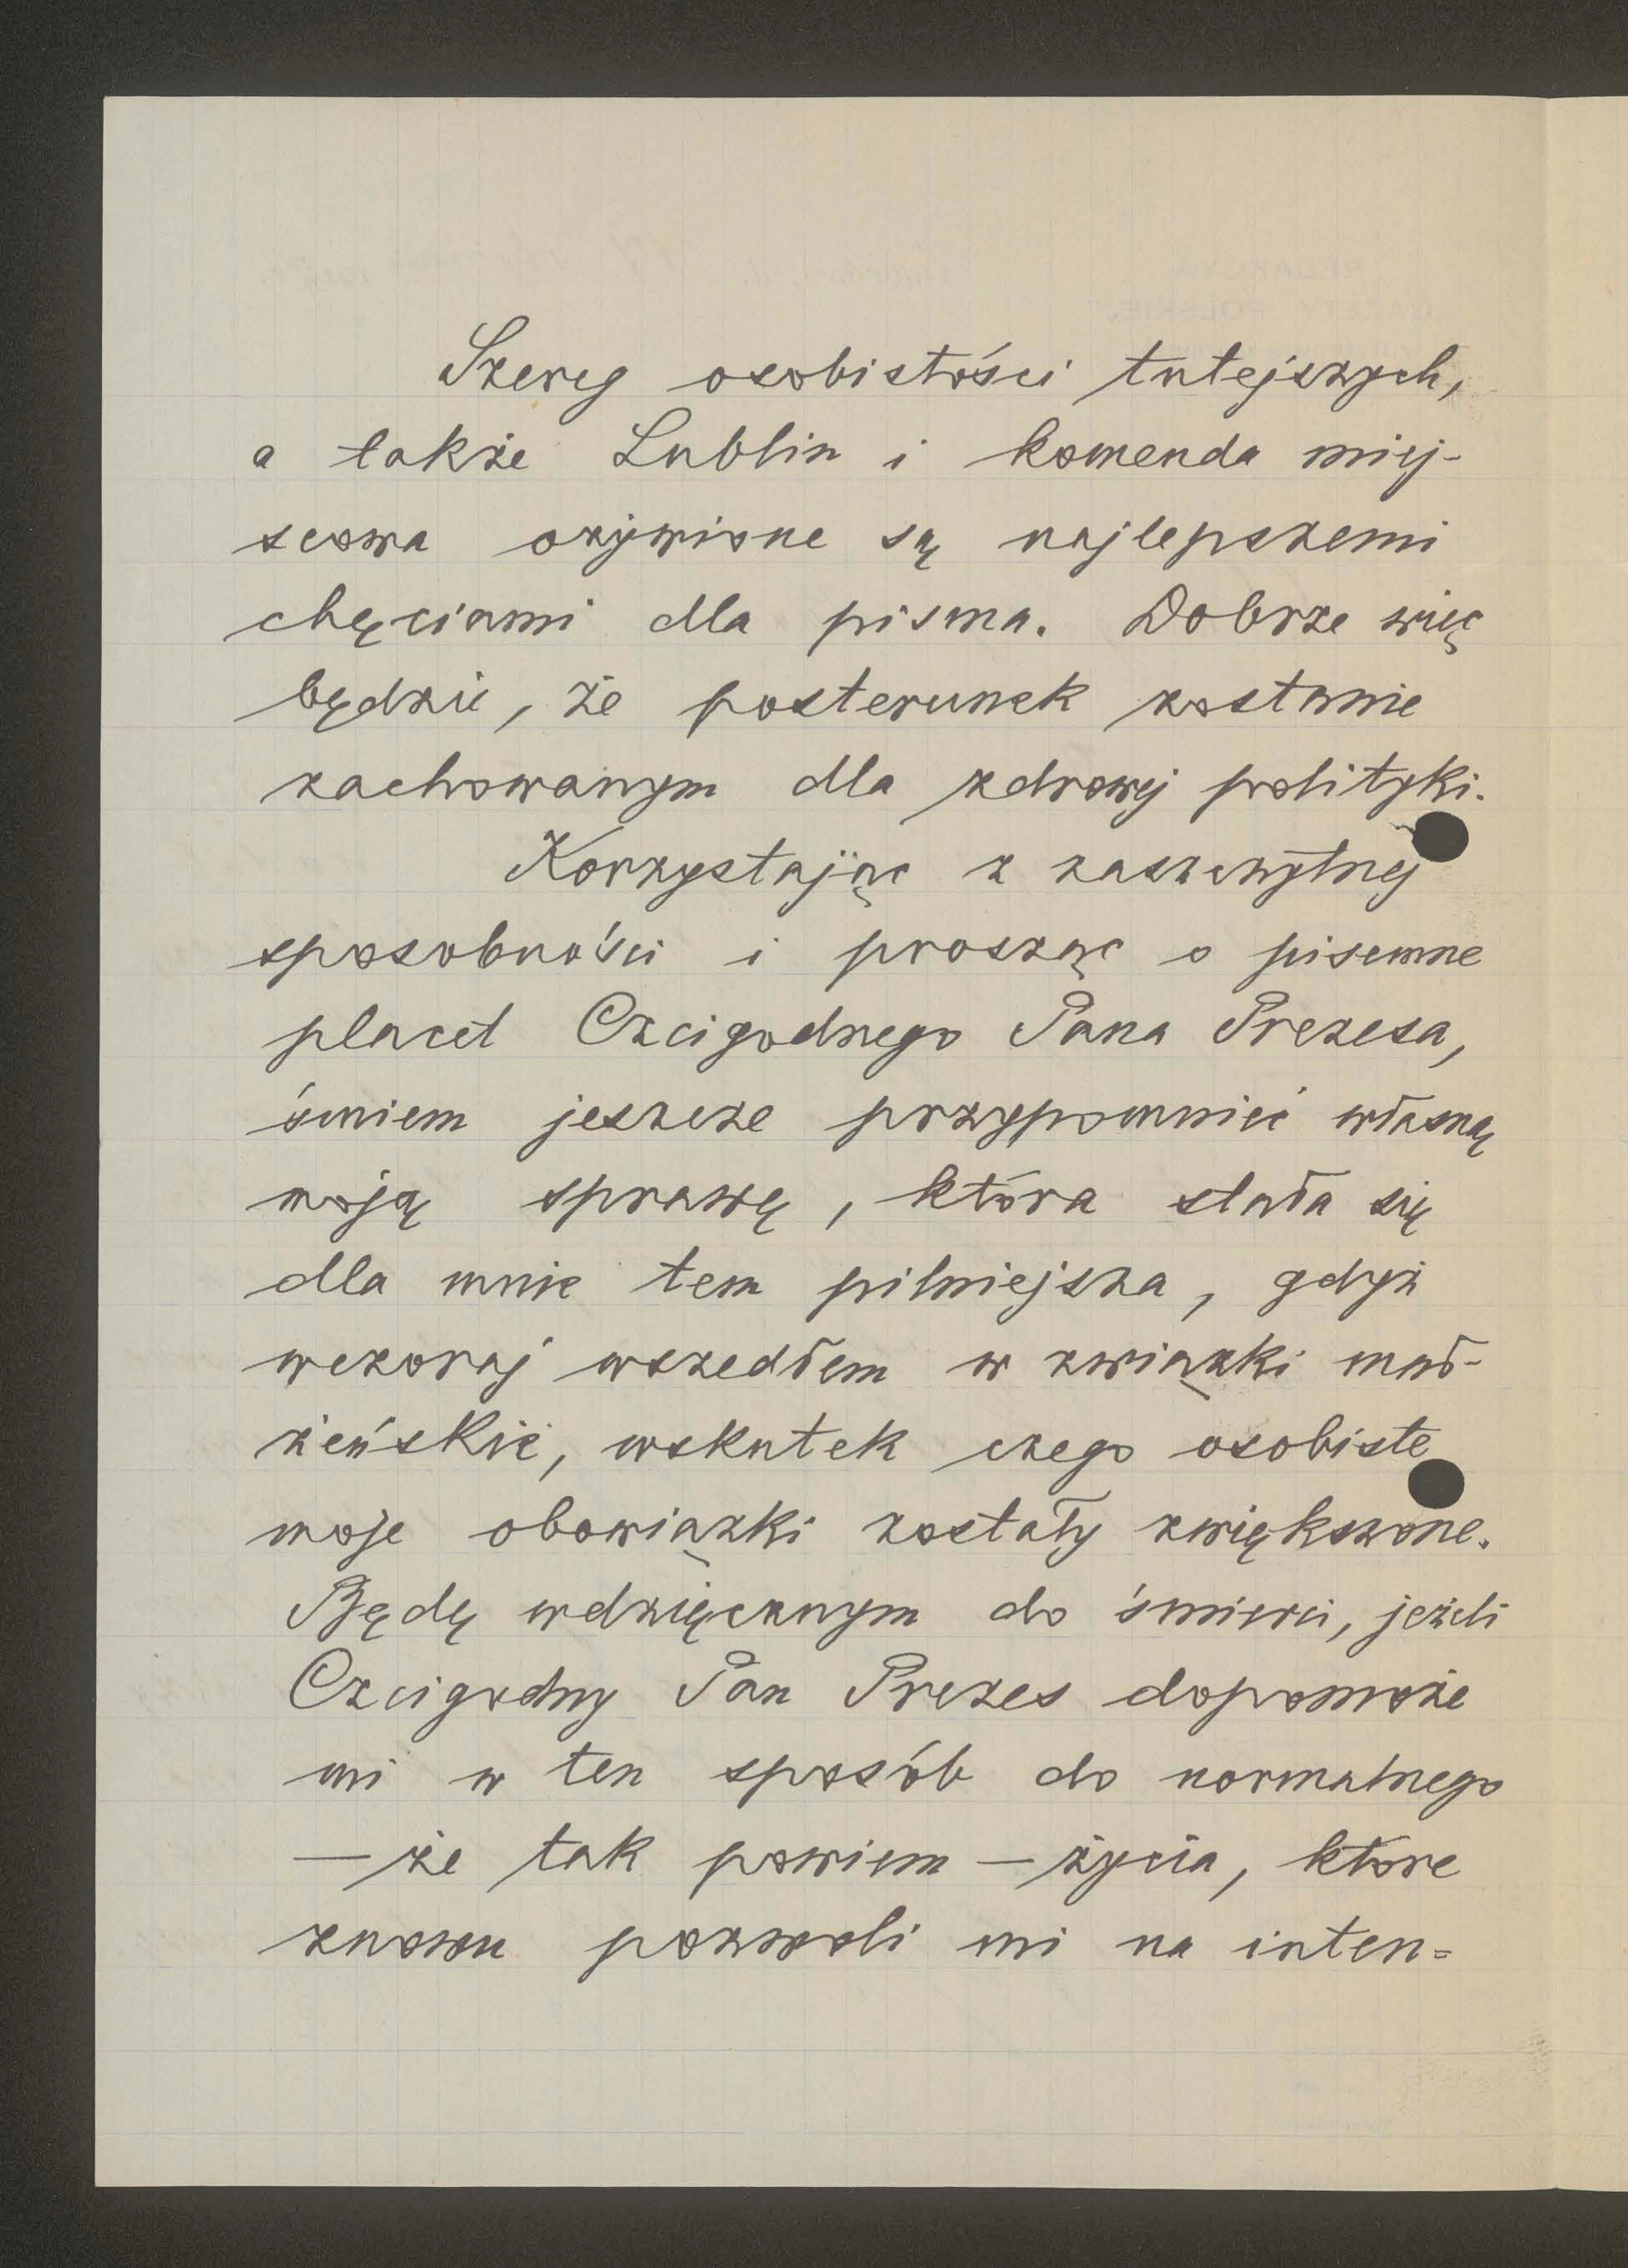 Szereg osobistości tutejszych,
a także Lublin i komenda miej-
scowa ożywione są najlepszemi
chęciami dla pisma. Dobrze więc
będzie, że posterunek zostanie
zachowanym dla zdrowej polityki.
Korzystając z zaszczytnej
sposobności i prosząc o pisemne
placet Czcigodnego Pana Prezesa,
śmiem jeszcze przypomnieć własną
moją sprawę, która stała się
dla mnie tem pilniejsza, gdyż
wczoraj wszedłem w związki mał-
żeńskie, wskutek czego osobiste
moje obowiązki zostały zwiększone.
Będę wdzięcznym do śmierci, jeżeli
Czcigodny Pan Prezes dopomoże
mi w ten sposób do normalnego
— że tak powiem — życia, które
znowu pozwoli mi na inten=